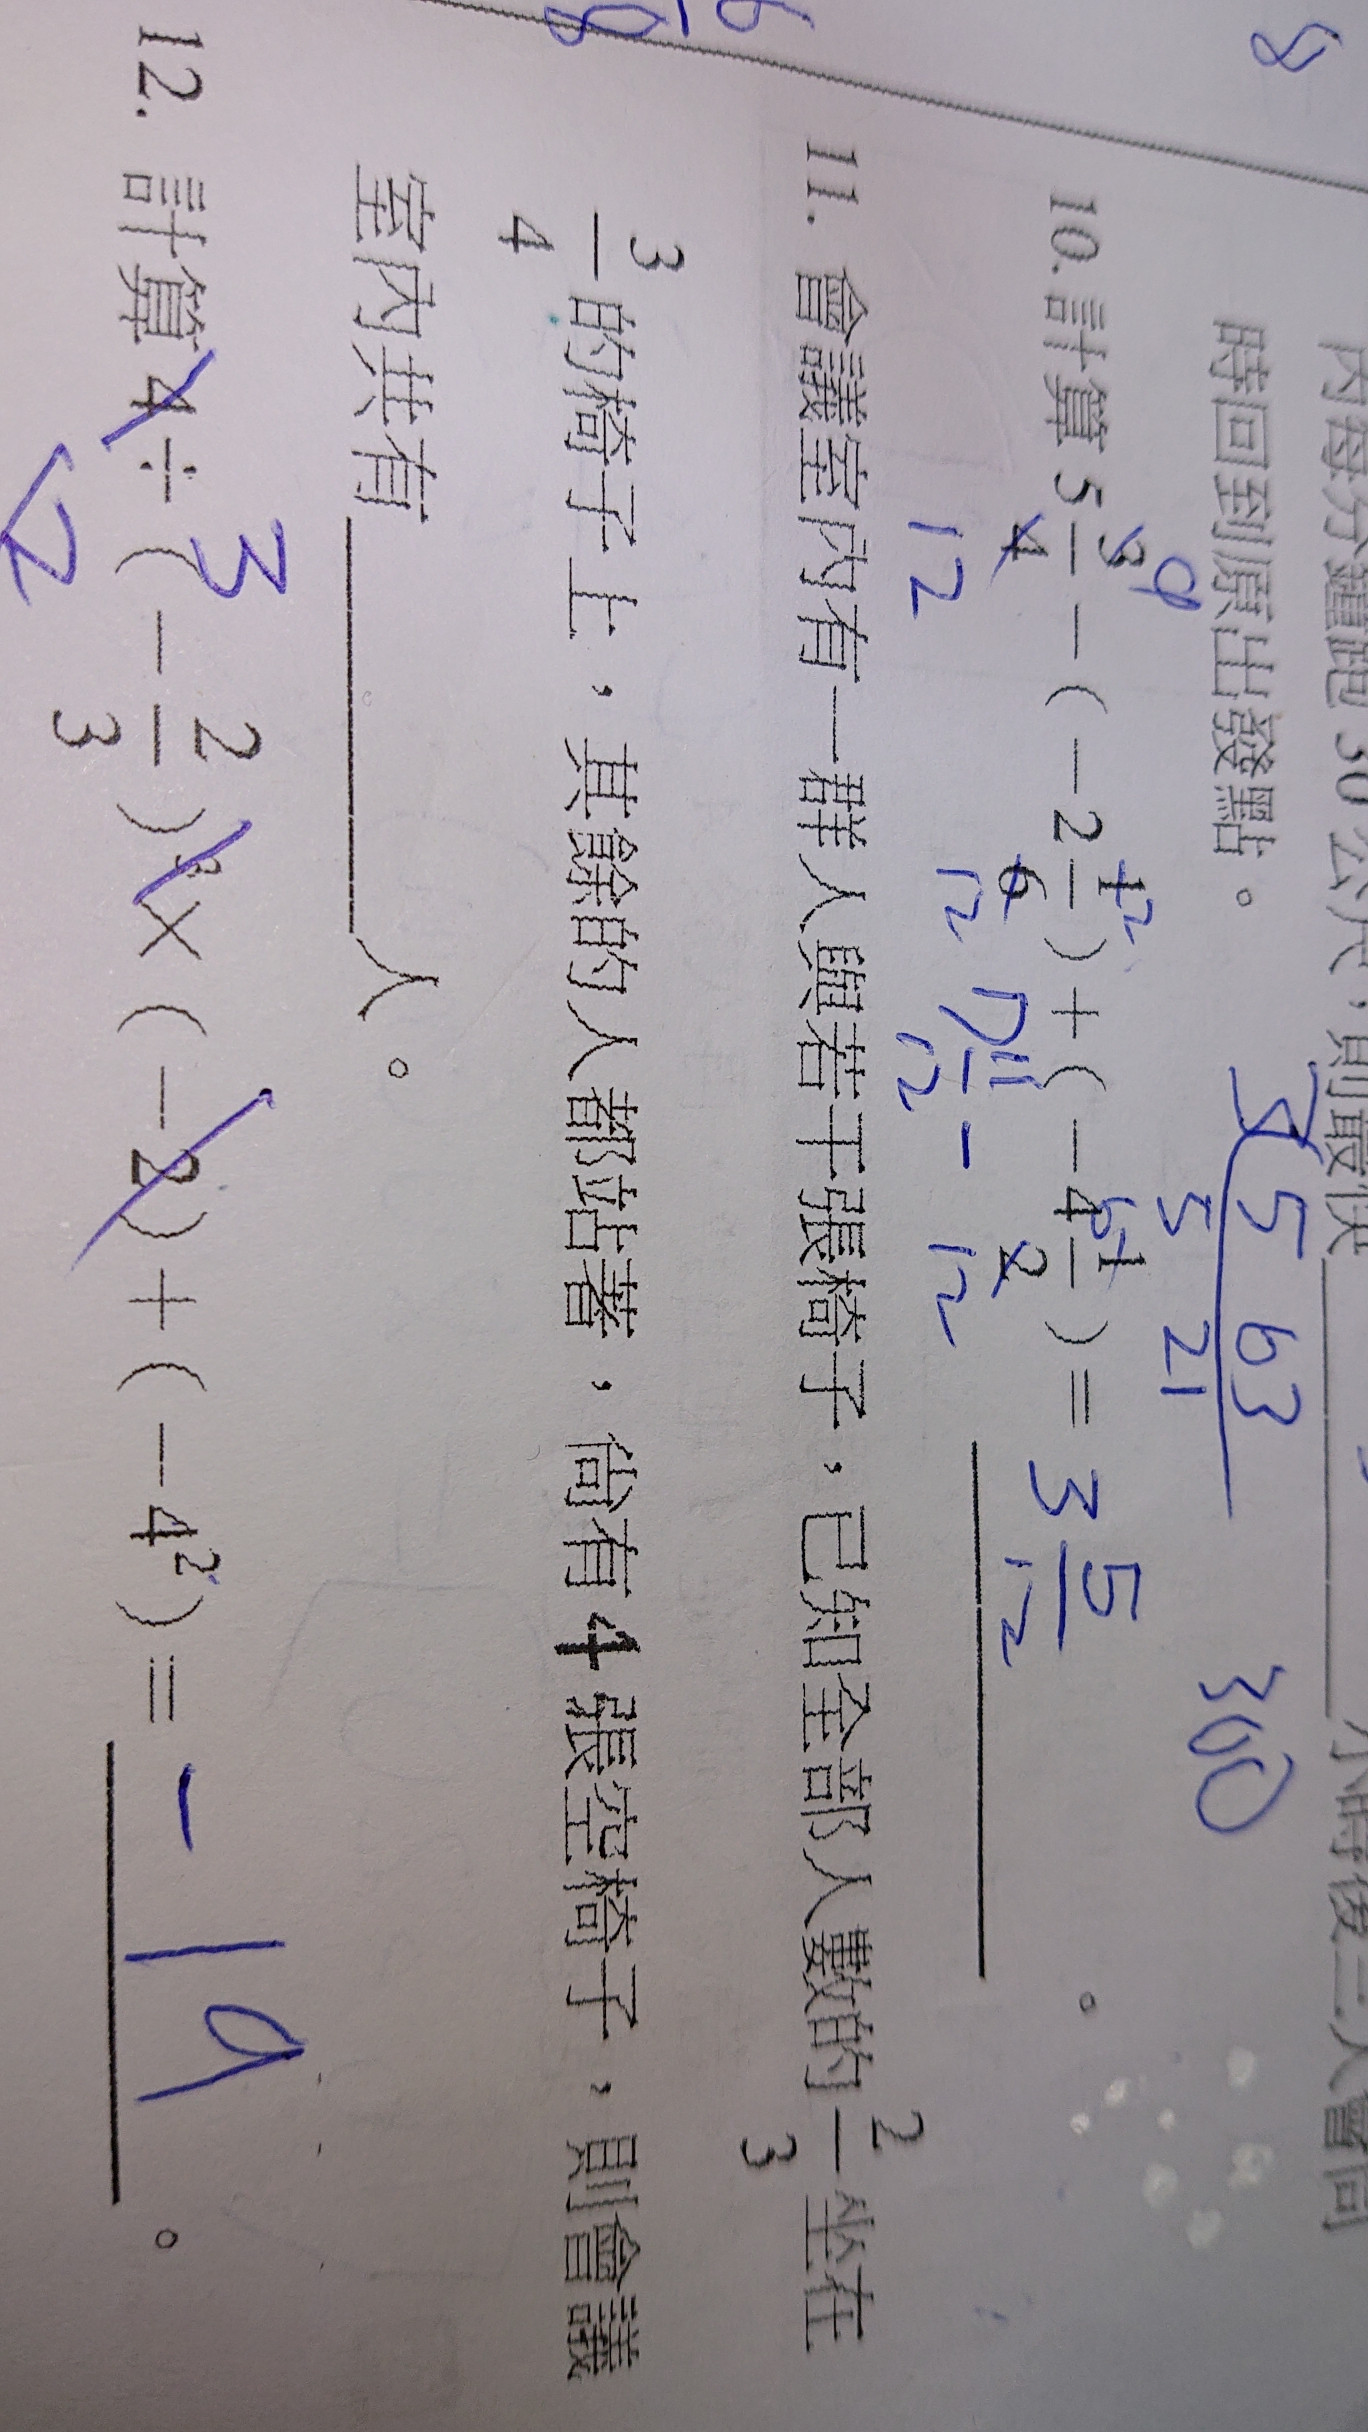 內每分鐘跑 30 公尺，則最快 小時後三人會同
時回到原出發點。
300
3 5 63
5 21
10. 計算 5 3/4 - ( - 2 1/6 ) + ( - 4 1/2 ) = 3 5/12 。
9 2 6
12 12 12
7 11/12 -
11. 會議室內有一群人與若干張椅子，已知全部人數的 2/3 坐在
3/4 的椅子上，其餘的人都站著，尚有 4 張空椅子，則會議
室內共有 人。
12. 計算 4 ÷ ( - 2/3 )³ × ( - 2 ) + ( - 4² ) = - 19 。
3
2
8